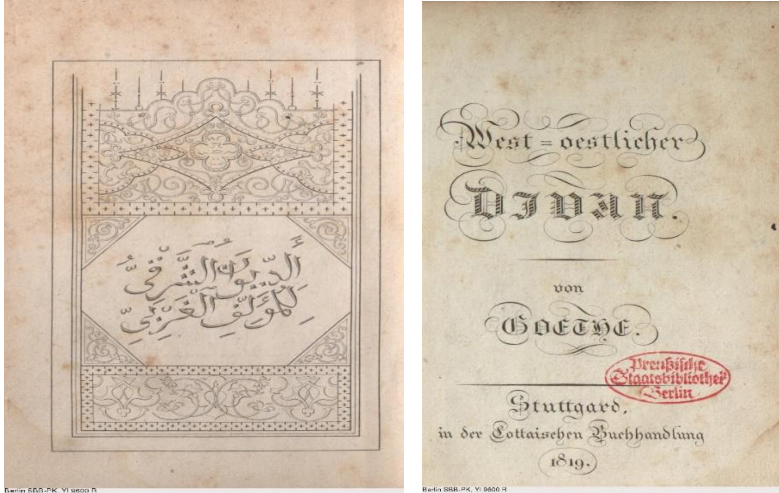 أَلدِّيوَانُ الشَّرْقِيُّ
لِلْمُؤَلِّفِ الْغَرْبِيِّ
Berlin SBB-PK, Yl 9600 R
West=oestlicher
DIVAN.
von
GOETHE.
Preußische
Staatsbibliothek
Berlin
Stuttgard,
in der Cottaischen Buchhandlung
1819.
Berlin SBB-PK, Yl 9600 R